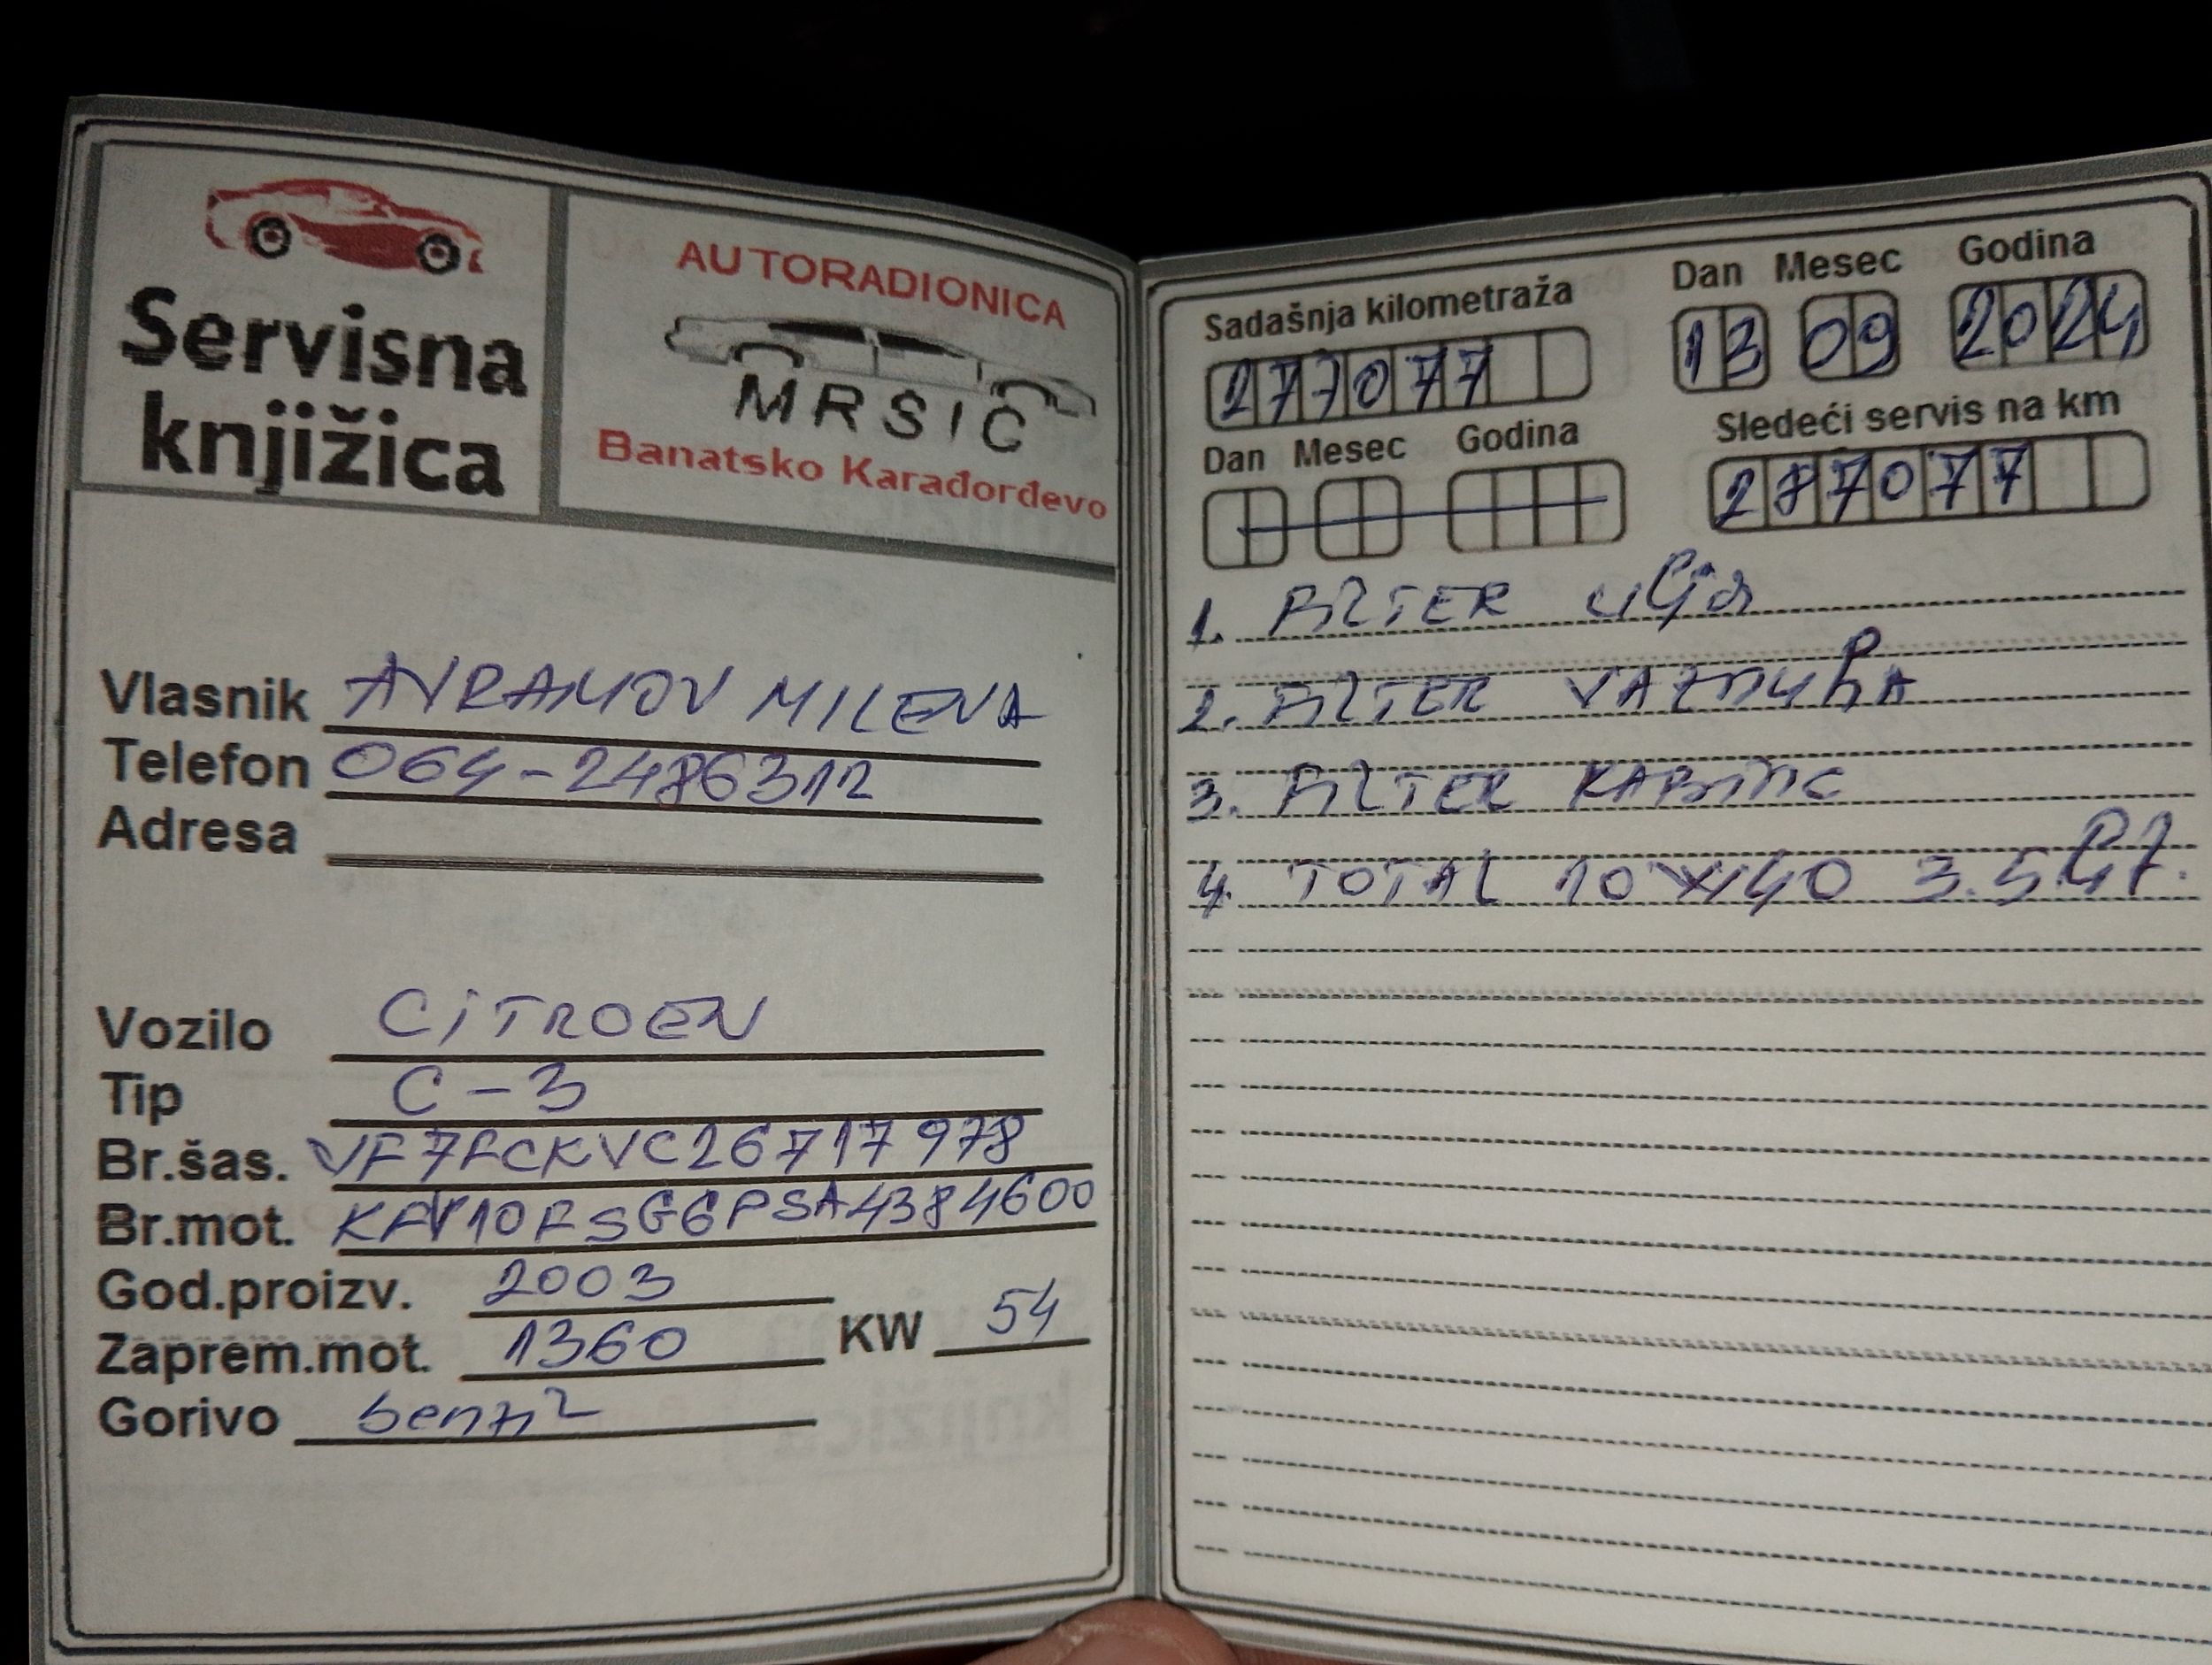 Servisna
knjižica
AUTORADIONICA
MRSIC
Banatsko Karađorđevo
Vlasnik AVRAMOV MILENA
Telefon 064-2486312
Adresa
Vozilo CiTROEN
Tip C-3
Br.šas. VF7FCKVC26717978
Br.mot. KFV10FSG6PSA4384600
God.proizv. 2003
Zaprem.mot. 1360 KW 54
Gorivo benzin
Sadašnja kilometraža Dan Mesec Godina
277077 13 09 2024
Dan Mesec Godina Sledeći servis na km
287077
1. FILTER ulja
2. FILTER VAZDUhA
3. FILTER KABINE
4. TOTAL 10W40 3.5 Lit.